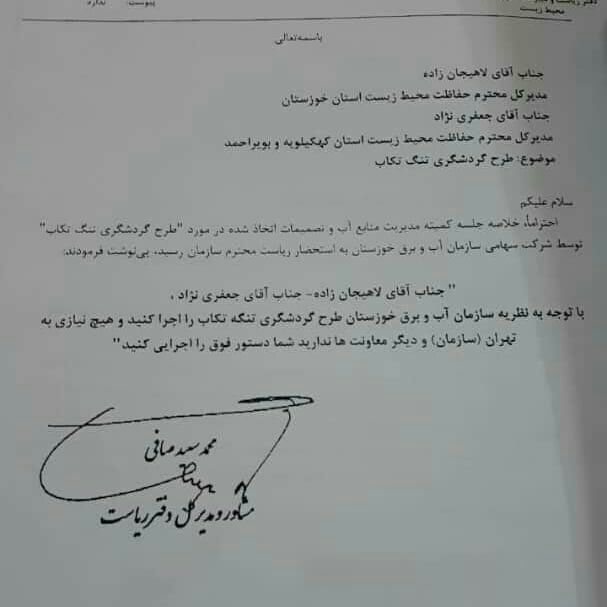 پیوست: ندارد
محیط زیست
باسمه‌تعالی
جناب آقای لاهیجان زاده
مدیرکل محترم حفاظت محیط زیست استان خوزستان
جناب آقای جعفری نژاد
مدیرکل محترم حفاظت محیط زیست استان کهکیلویه و بویراحمد
موضوع: طرح گردشگری تنگ تکاب
سلام علیکم
احتراماً، خلاصه جلسه کمیته مدیریت منابع آب و تصمیمات اتخاذ شده در مورد "طرح گردشگری تنگ تکاب"
توسط شرکت سهامی سازمان آب و برق خوزستان به استحضار ریاست محترم سازمان رسید، پی‌نوشت فرمودند:
" جناب آقای لاهیجان زاده- جناب آقای جعفری نژاد ،
با توجه به نظریه سازمان آب و برق خوزستان طرح گردشگری تنگه تکاب را اجرا کنید و هیچ نیازی به
تهران (سازمان) و دیگر معاونت ها ندارید شما دستور فوق را اجرایی کنید"
محمد سعید صافی
مشاور و مدیرکل دفتر ریاست